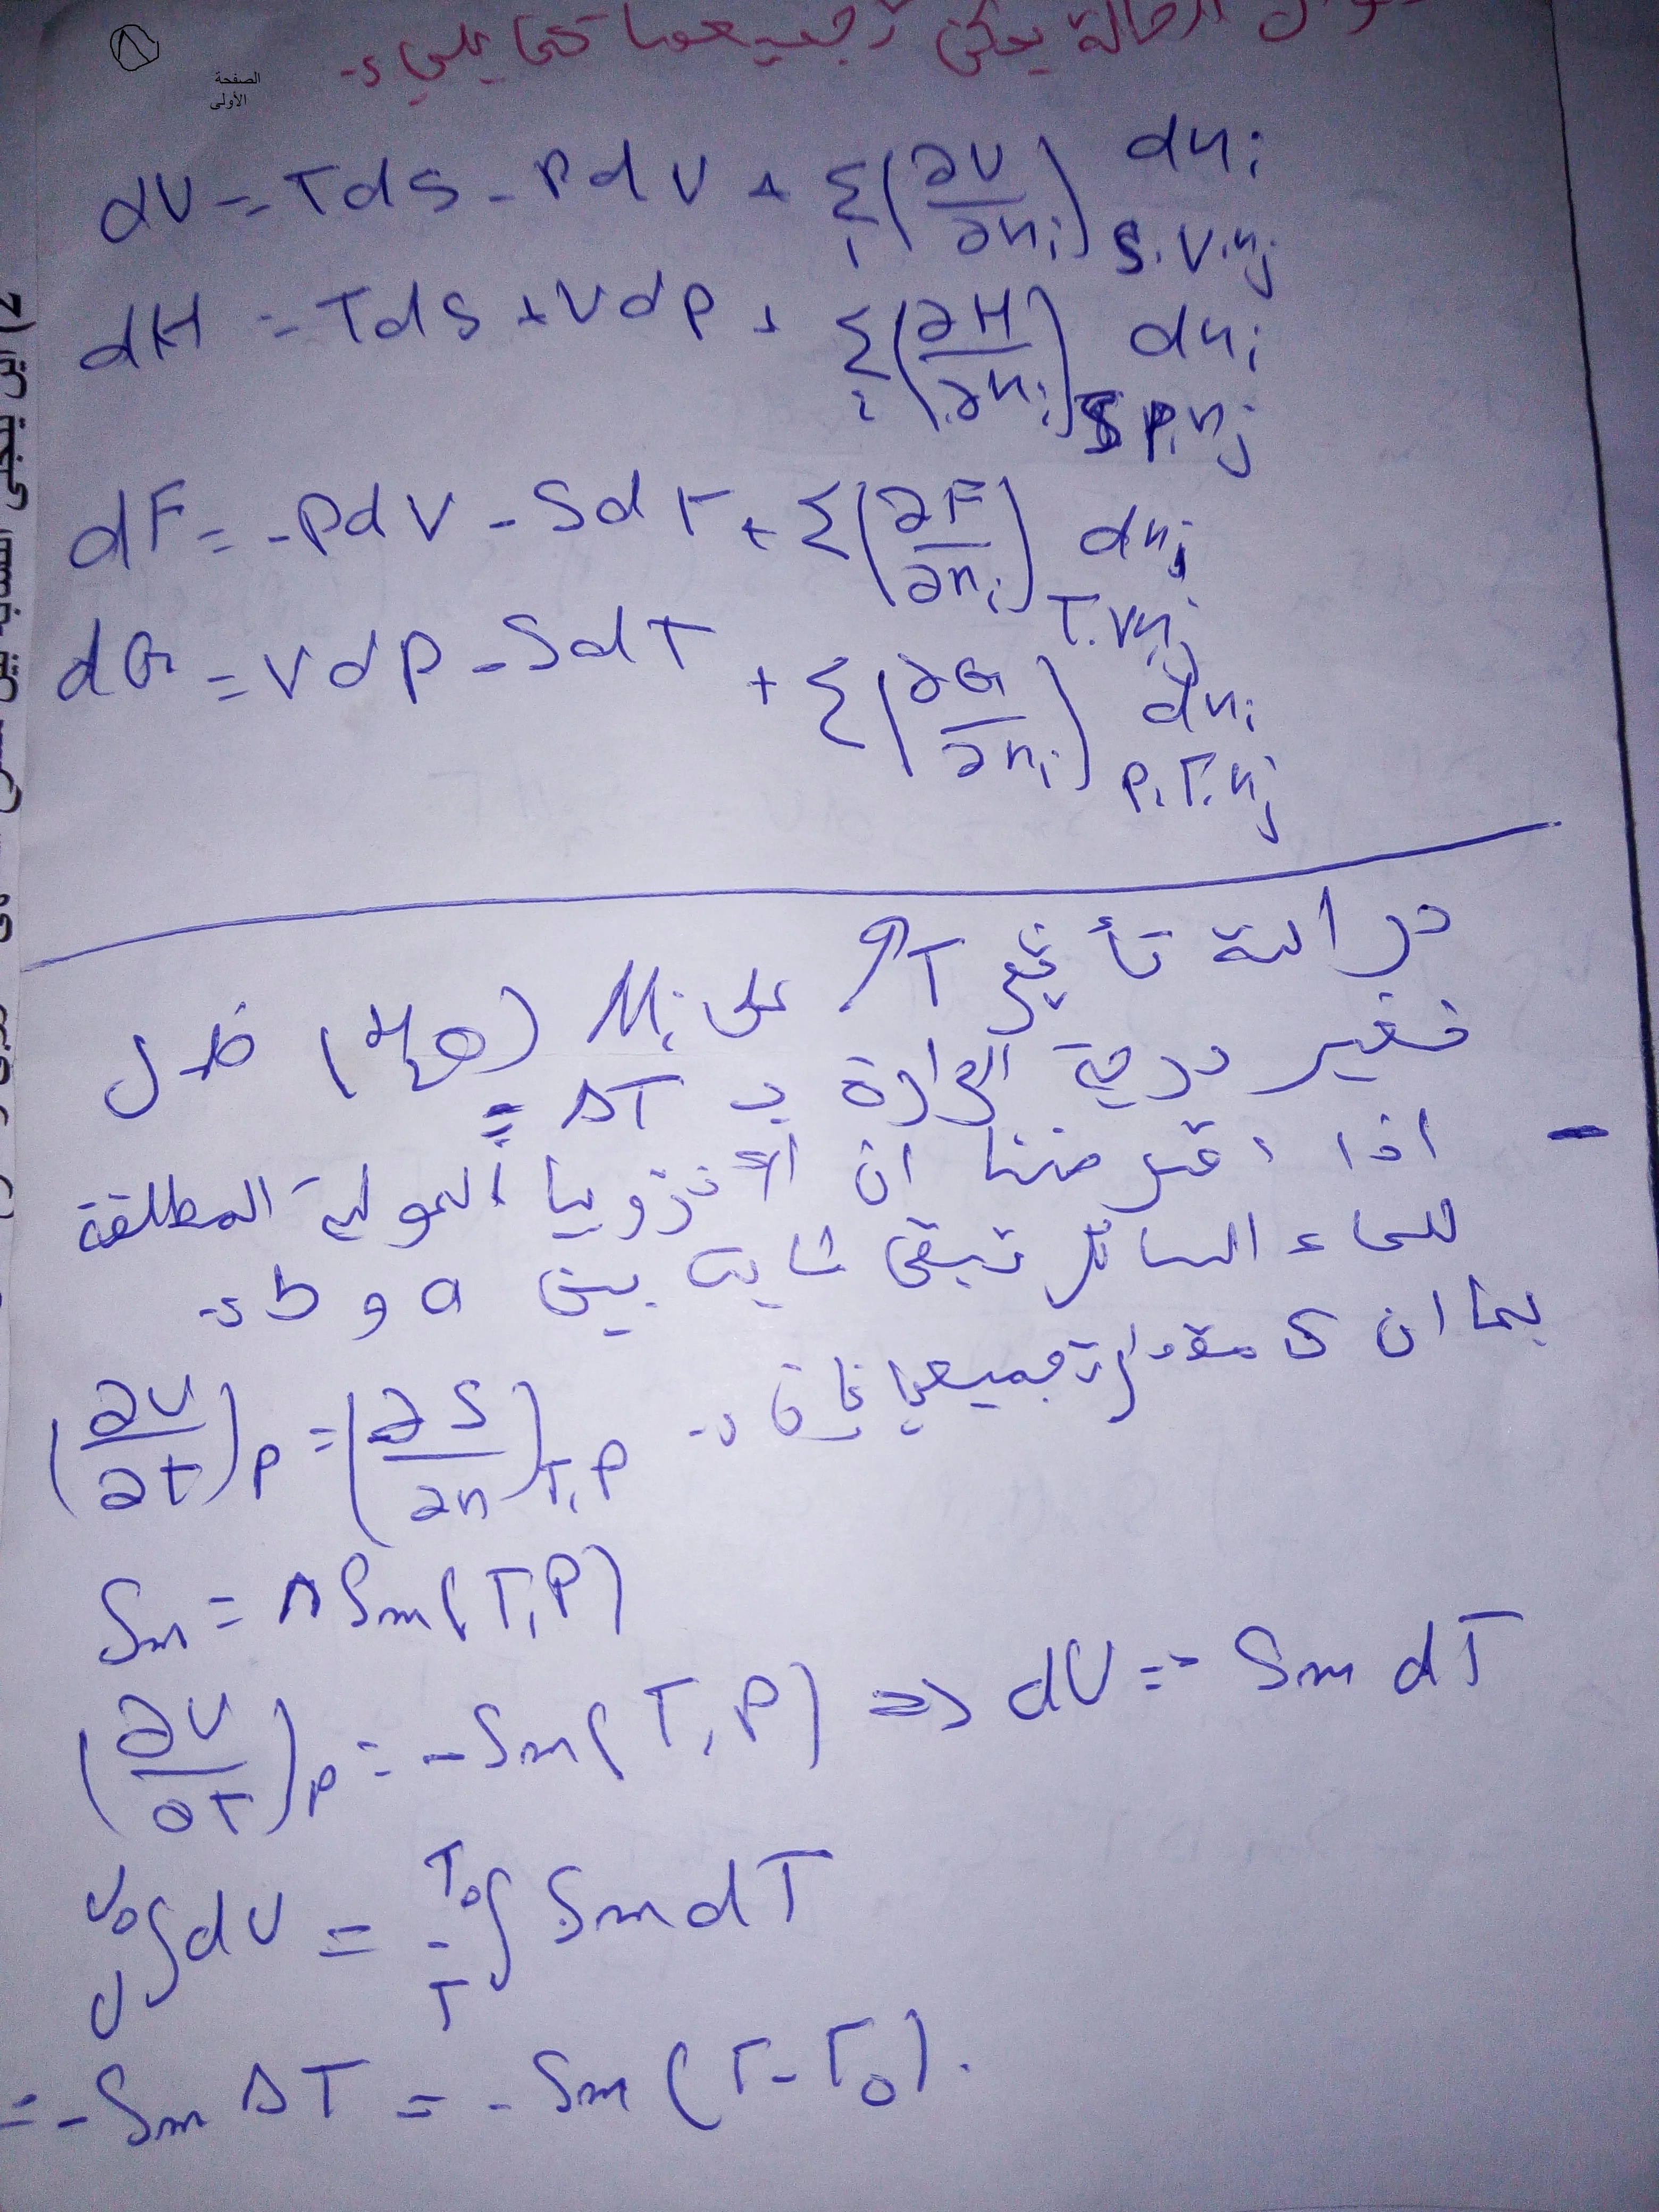 الصفحة
الأولى
الحالة يمكن تجميعها كما يلي :-
dU = TdS - PdV + Σi (∂U/∂ni) S.V.nj dni
dH = TdS + VdP + Σi (∂H/∂ni) S P.nj dni
dF = -PdV - SdT + Σ (∂F/∂ni) T.V nj dni
dG = VdP - SdT + Σ (∂G/∂ni) P.T.nj dni
دراسة تأثير T على Mi خلال
تغير درجة الحرارة بـ ΔT =
- اذا افترضنا ان الأنتروبيا المولية المطلقة
للماء السائل تبقى ثابتة بين a و b :-
بما ان S مقدار تجميعي فإن :-
(∂U/∂t)P = (-∂S/∂n)T,P
Sm = ΔSm(T,P)
(∂U/∂T)P = -Sm(T,P) => dU = - Sm dT
U0∫U dU = - T0∫T Sm dT
= -Sm ΔT = - Sm (T-T0).